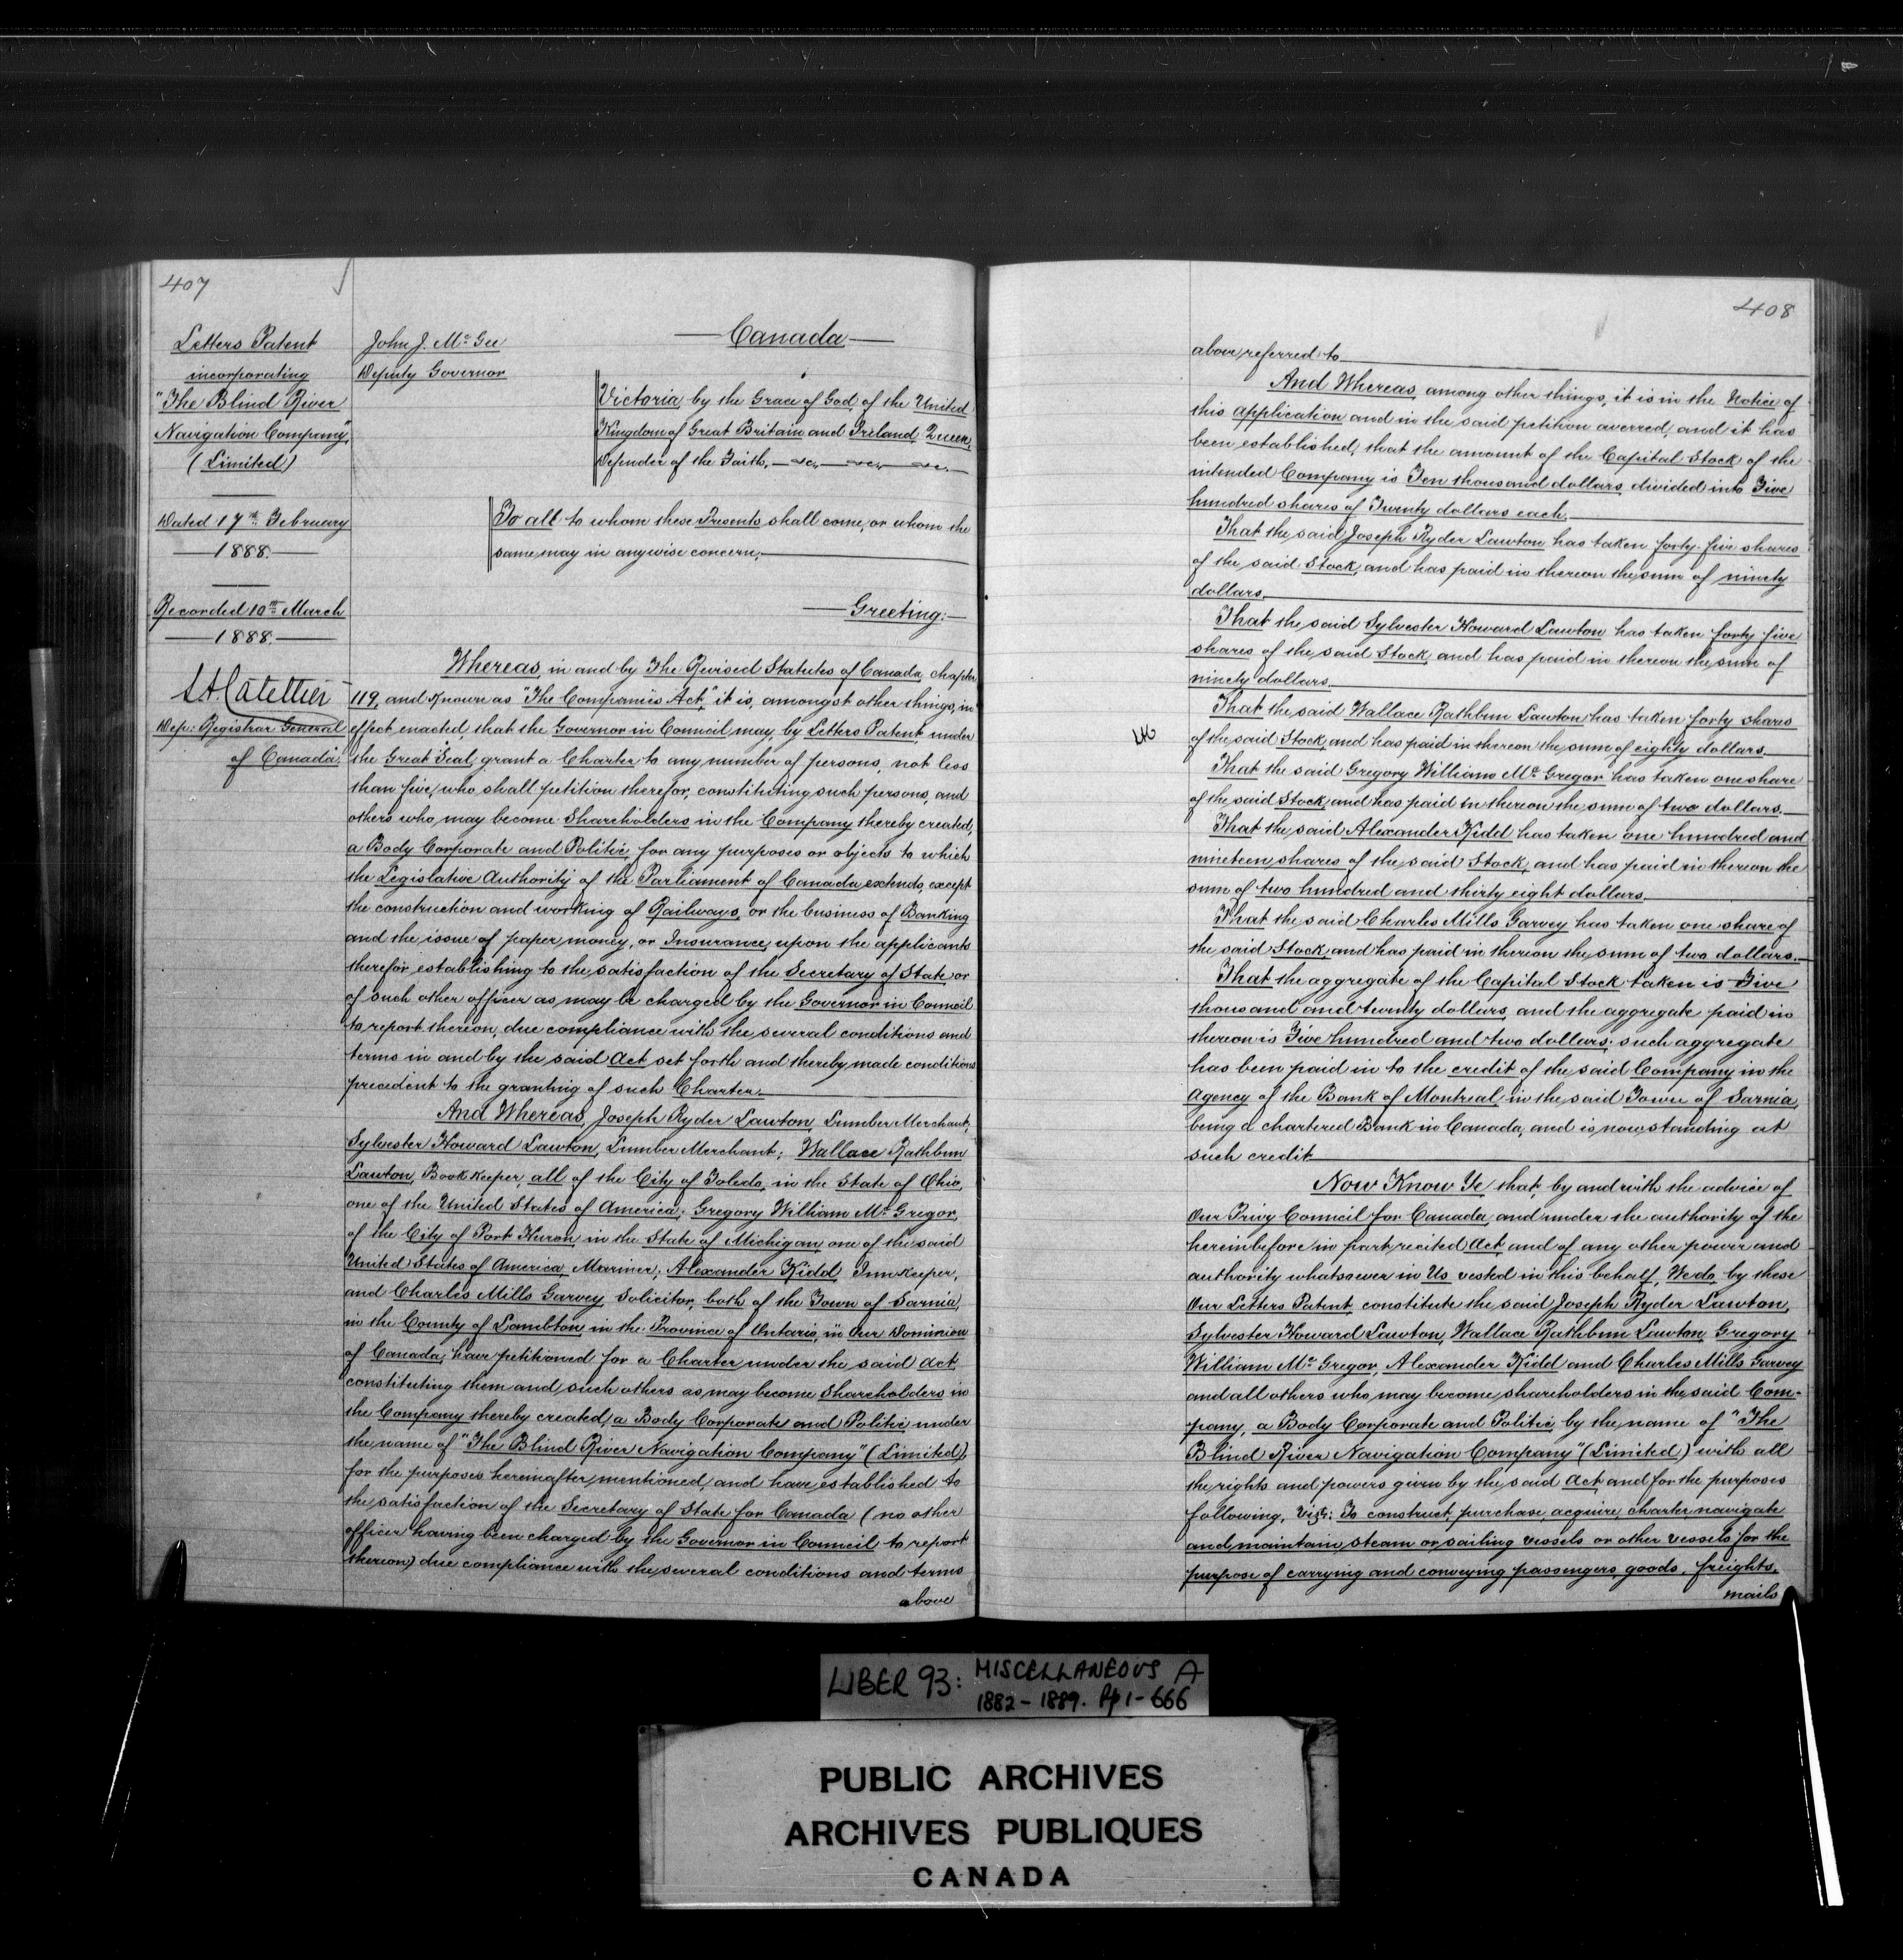 407
Letters Patent
incorporating
"The Blind River
Navigation Company"
(Limited)
Dated 17th February
1888.
Recorded 10th March
1888.
Dep: Registrar General
of Canada.
John J. McGee
Deputy Governor
Canada
Victoria, by the Grace of God, of the United
Kingdom of Great Britain and Ireland, Queen,
Defender of the Faith, &c., &c., &c.
To all to whom these Presents shall come, or whom the
same may in anywise concern,
Greeting:
Whereas, in and by The Revised Statutes of Canada, chapter
119, and known as "The Companies Act," it is, amongst other things, in
effect, enacted that the Governor in Council may, by Letters Patent, under
the Great Seal, grant a Charter to any number of persons, not less
than five, who shall petition therefor, constituting such persons, and
others who may become Shareholders in the Company thereby created,
a Body Corporate and Politic, for any purposes or objects to which
the Legislative Authority of the Parliament of Canada extends, except
the construction and working of Railways, or the business of Banking
and the issue of paper money, or Insurance, upon the applicants
therefor establishing to the satisfaction of the Secretary of State or
of such other officer as may be charged by the Governor in Council
to report thereon, due compliance with the several conditions and
terms in and by the said Act set forth and thereby made conditions
precedent to the granting of such Charter.
And Whereas, Joseph Ryder Lawton, Lumber Merchant;
Sylvester Howard Lawton, Lumber Merchant; Wallace Rathbun
Lawton, Bookkeeper, all of the City of Toledo, in the State of Ohio,
one of the United States of America; Gregory William McGregor,
of the City of Port Huron, in the State of Michigan, one of the said
United States of America, Mariner; Alexander Kidd, Innkeeper,
and Charles Mills Garvey, Solicitor, both of the Town of Sarnia,
in the County of Lambton, in the Province of Ontario, in Our Dominion
of Canada, have petitioned for a Charter under the said Act,
constituting them and such others as may become Shareholders in
the Company thereby created, a Body Corporate and Politic under
the name of "The Blind River Navigation Company" (Limited),
for the purposes hereinafter mentioned, and have established to
the satisfaction of the Secretary of State for Canada (no other
officer having been charged by the Governor in Council to report
thereon) due compliance with the several conditions and terms
above
408
above referred to
And Whereas, among other things, it is in the Notice of
this application and in the said petition averred, and it has
been established, that the amount of the Capital Stock of the
intended Company is Ten thousand dollars, divided into Five
hundred shares of Twenty dollars each.
That the said Joseph Ryder Lawton has taken forty-five shares
of the said Stock, and has paid in thereon the sum of ninety
dollars.
That the said Sylvester Howard Lawton has taken forty five
shares of the said Stock, and has paid in thereon the sum of
ninety dollars.
That the said Wallace Rathbun Lawton has taken forty shares
of the said Stock, and has paid in thereon the sum of eighty dollars.
That the said Gregory William McGregor has taken one share
of the said Stock, and has paid in thereon the sum of two dollars.
That the said Alexander Kidd has taken one hundred and
nineteen shares of the said Stock, and has paid in thereon the
sum of two hundred and thirty eight dollars.
That the said Charles Mills Garvey has taken one share of
the said Stock and has paid in thereon the sum of two dollars.
That the aggregate of the Capital Stock taken is Five
thousand and twenty dollars, and the aggregate paid in
thereon is Five hundred and two dollars; such aggregate
has been paid in to the credit of the said Company in the
Agency of the Bank of Montreal in the said Town of Sarnia,
being a chartered Bank in Canada, and is now standing at
such credit
Now Know Ye, that, by and with the advice of
Our Privy Council for Canada, and under the authority of the
hereinbefore in part recited Act, and of any other power and
authority whatsoever in Us vested in this behalf, We do, by these
Our Letters Patent, constitute the said Joseph Ryder Lawton,
Sylvester Howard Lawton, Wallace Rathbun Lawton, Gregory
William McGregor, Alexander Kidd and Charles Mills Garvey
and all others who may become shareholders in the said Com-
pany, a Body Corporate and Politic, by the name of "The
Blind River Navigation Company" (Limited) with all
the rights and powers given by the said Act, and for the purposes
following, viz: To construct, purchase, acquire, charter navigate
and maintain steam or sailing vessels or other vessels for the
purpose of carrying and conveying passengers, goods, freights,
mails
LIBER 93: MISCELLANEOUS A
1882-1889. Pp 1-666
PUBLIC ARCHIVES
ARCHIVES PUBLIQUES
CANADA